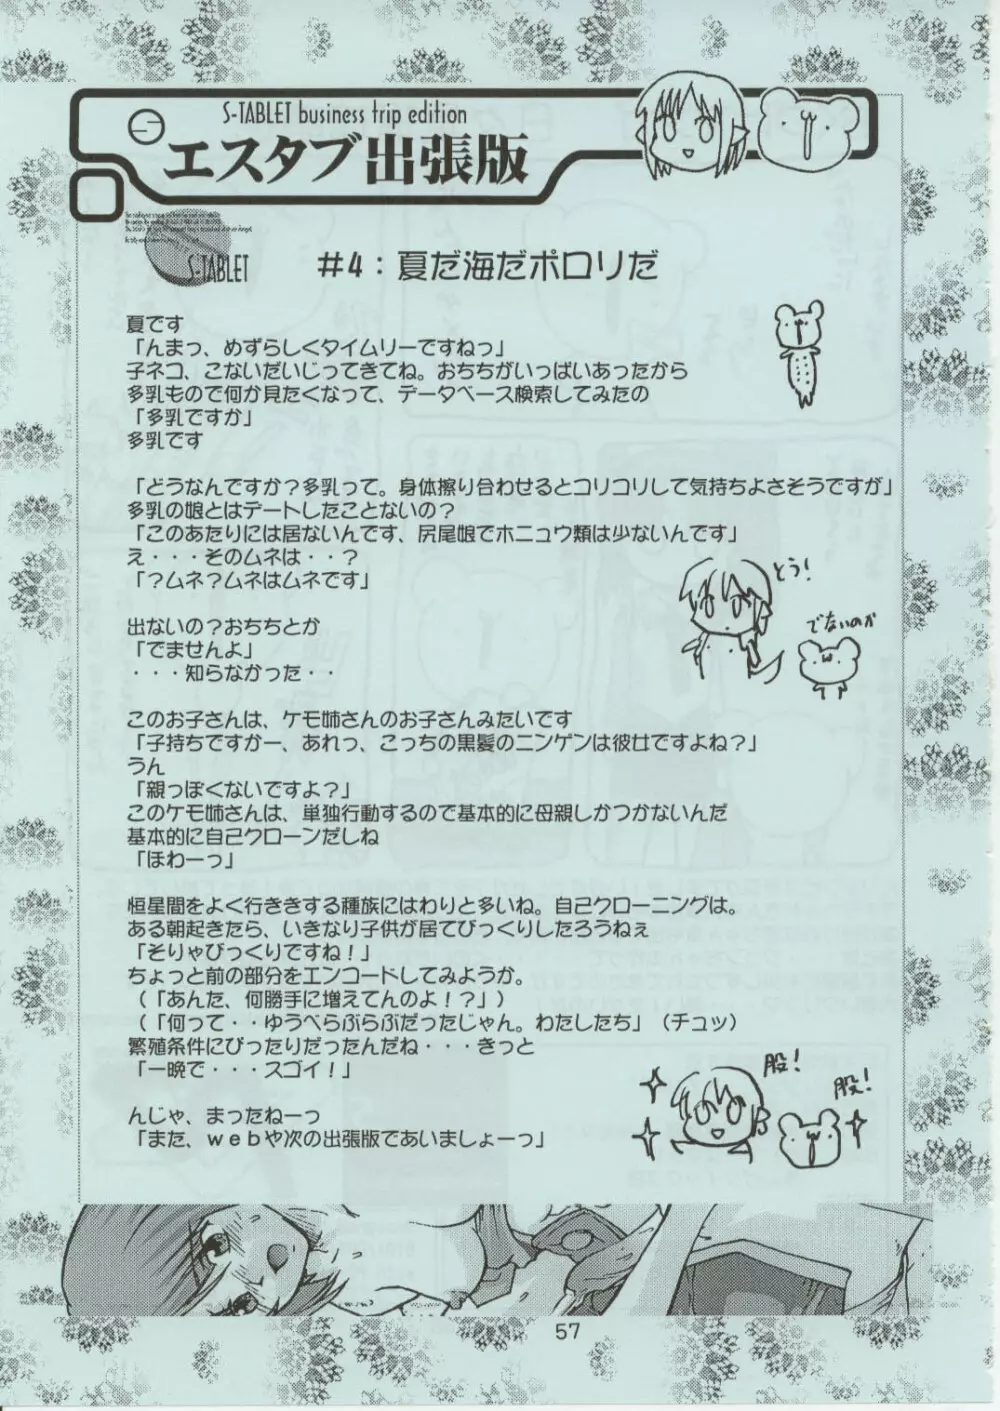 S-TABLET business trip edition
エスタブ出張版
S-TABLET
#4：夏だ海だポロリだ
夏です
「んまっ、めずらしくタイムリーですねっ」
子ネコ、こないだいじってきてね。おちちがいっぱいあったから
多乳もので何か見たくなって、データベース検索してみたの
「多乳ですか」
多乳です
「どうなんですか？多乳って。身体擦り合わせるとコリコリして気持ちよさそうですが」
多乳の娘とはデートしたことないの？
「このあたりには居ないんです、尻尾娘でホニュウ類は少ないんです」
え・・・そのムネは・・？
「？ムネ？ムネはムネです」
とう！
でないのか
出ないの？おちちとか
「でませんよ」
・・・知らなかった・・
このお子さんは、ケモ姉さんのお子さんみたいです
「子持ちですかー、あれっ、こっちの黒髪のニンゲンは彼女ですよね？」
うん
「親っぽくないですよ？」
このケモ姉さんは、単独行動するので基本的に母親しかつかないんだ
基本的に自己クローンだしね
「ほわーっ」
恒星間をよく行ききする種族にはわりと多いね。自己クローニングは。
ある朝起きたら、いきなり子供が居てびっくりしたろうねぇ
「そりゃびっくりですね！」
ちょっと前の部分をエンコードしてみようか。
（「あんた、何勝手に増えてんのよ！？」）
（「何って・・ゆうべらぶらぶだったじゃん。わたしたち」（チュッ）
繁殖条件にぴったりだったんだね・・・きっと
「一晩で・・・スゴイ！」
股！
股！
んじゃ、まったねーっ
「また、ｗｅｂや次の出張版であいましょーっ」
57